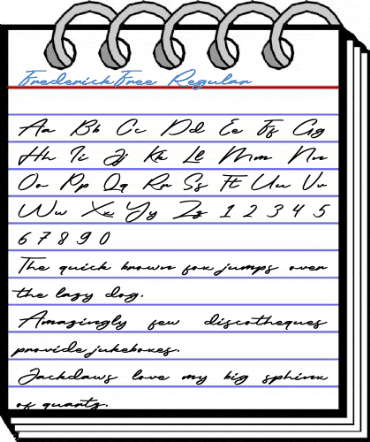 FrederickFree Regular
Aa Bb Cc Dd Ee Ff Gg
Hh Ii Jj Kk Ll Mm Nn
Oo Pp Qq Rr Ss Tt Uu Vv
Ww Xx Yy Zz 1 2 3 4 5
6 7 8 9 0
The quick brown fox jumps over
the lazy dog.
Amazingly few discotheques
provide jukeboxes.
Jackdaws love my big sphinx
of quartz.